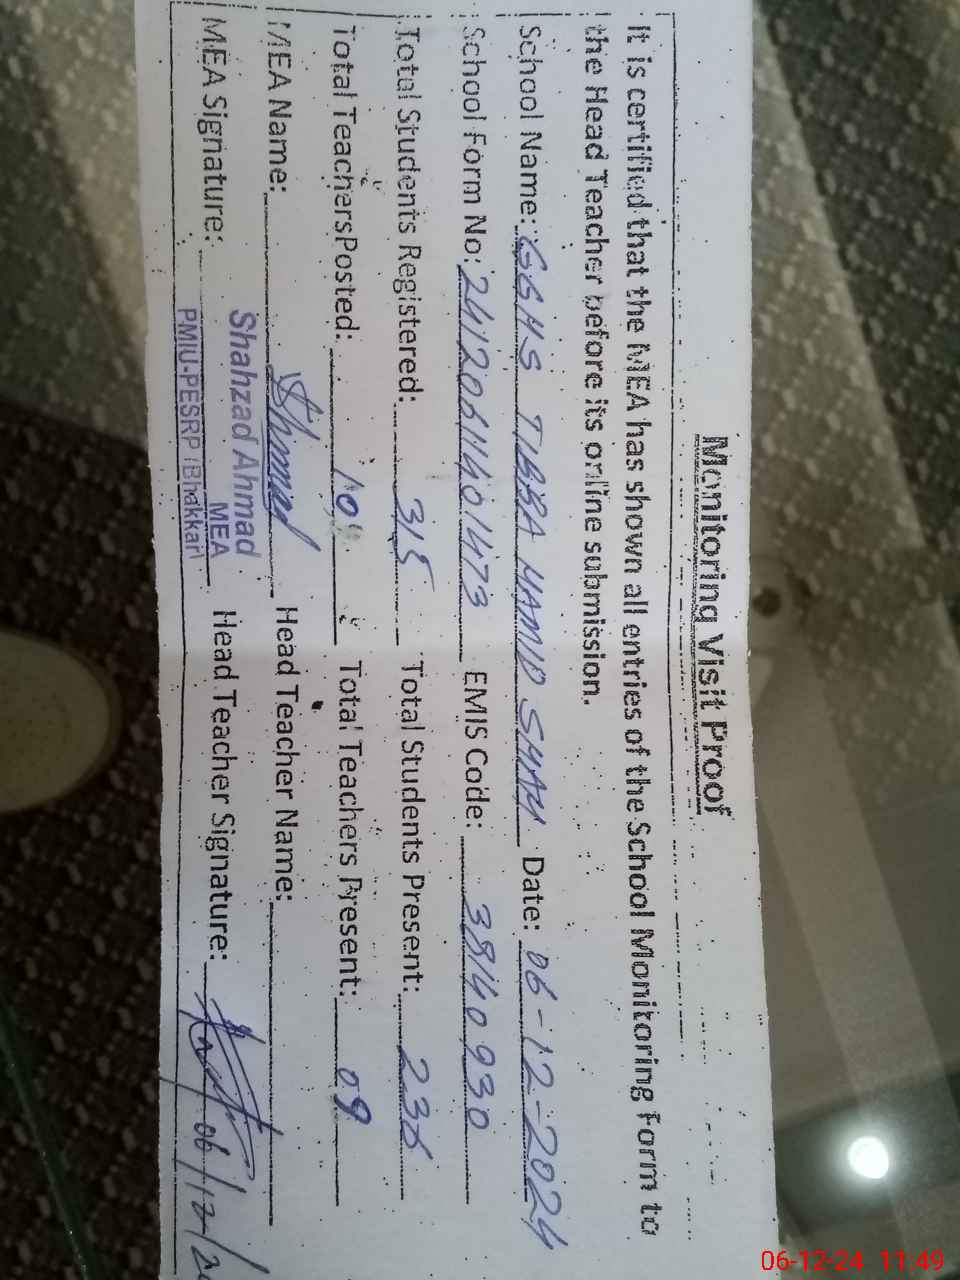 Monitoring Visit Proof
It is certified that the MEA has shown all entries of the School Monitoring Form to
the Head Teacher before its online submission.
School Name: GGHS TIBBA HAMID SHAH Date: 06-12-2024
School Form No: 24120611401473 EMIS Code: 38140930
Total Students Registered: 315 Total Students Present: 236
Total Teachers Posted: 10 Total Teachers Present: 09
MEA Name: Head Teacher Name:
MEA Signature: Head Teacher Signature: 06/12/
Shahzad Ahmad
MEA
PMIU-PESRP (Bhakkar)
06-12-24 11:49